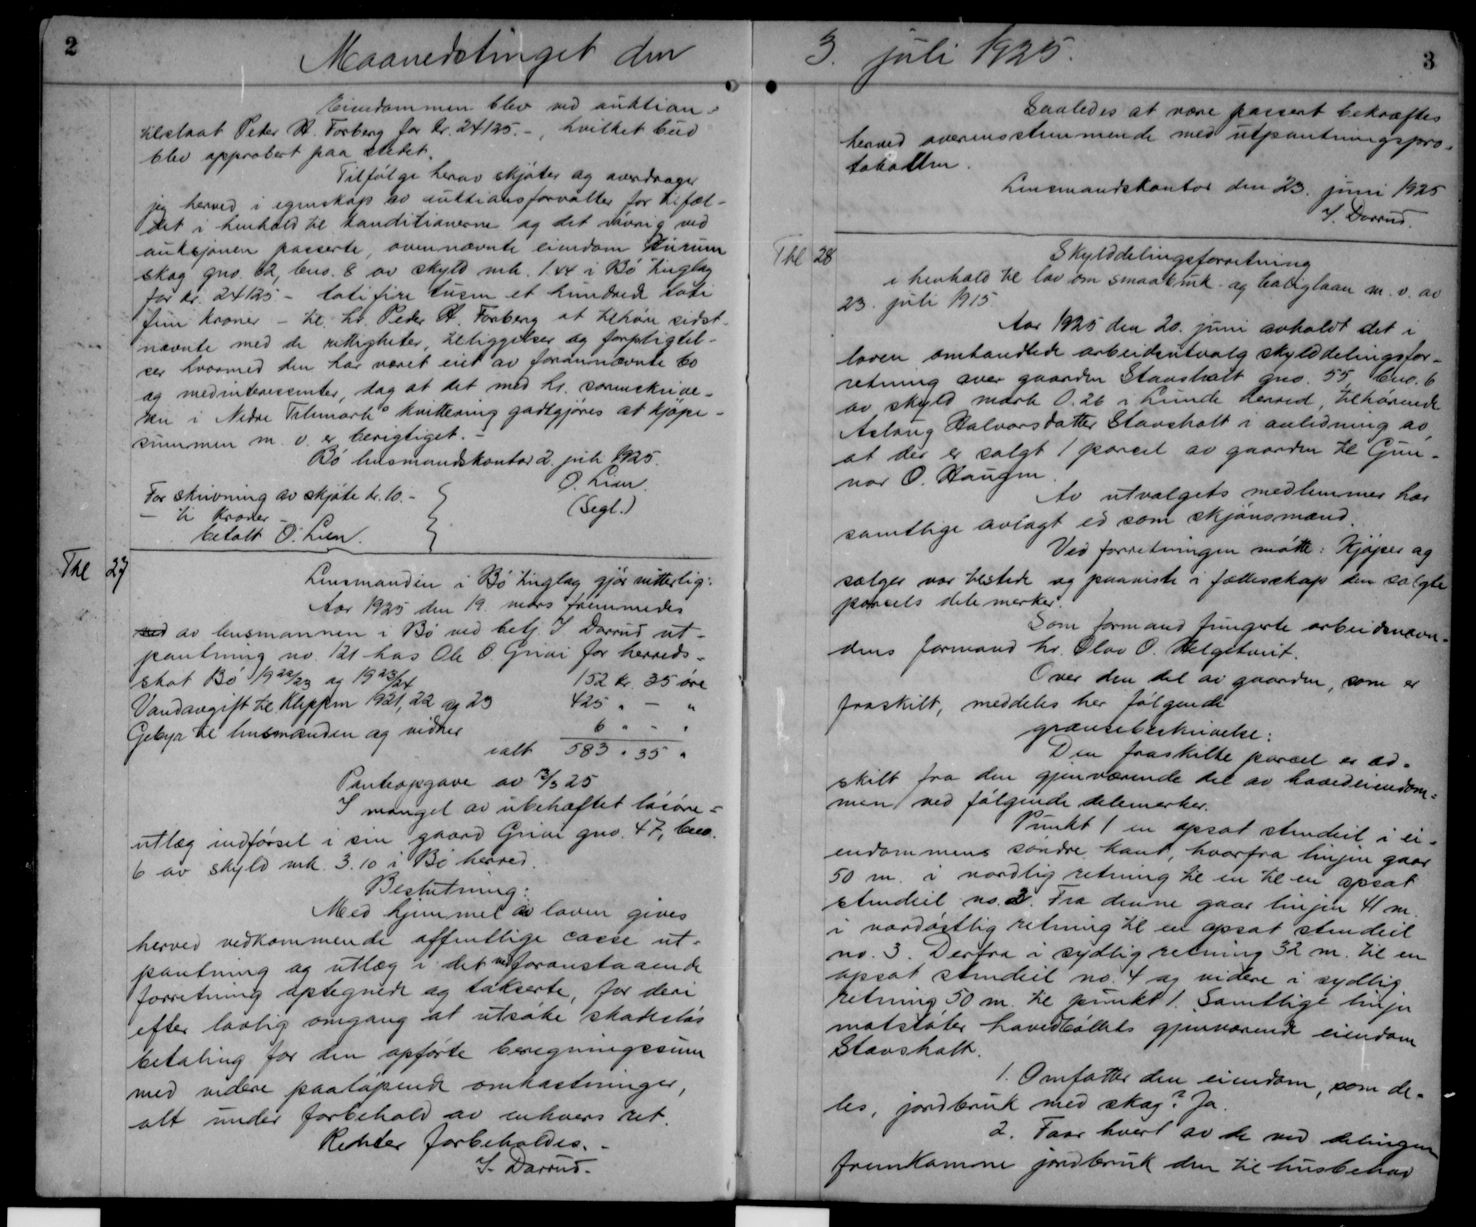 2
Maanedstinget den
Eiendommen blev ved auktion-
tilslaat Peder H. Forberg for kr. 24125.-, hvilket bud
blev approbert paa stedet.
Tilfølge herav skjøter og overdrager
jeg herved i egenskap av auktionsforvalter for tilfæl-
det i henhold til konditionerne og det iøvrig ved
auksjonen passerte, ovennævnte eiendom
skog gno. 62, bno. 6 av skyld mk. 1.44 i Bø tinglag
for kr. 24125 - toti fire tusen et hundrede toti
fem kroner - til hr. Peder H. Forberg at tilhøre sidst-
nævnte med de rettigheter, tilliggelser og forpligtel-
ser hvormed den har været eiet av forannævnte bo
og medinteressenter, dog at det med hr. sorenskrive-
ren i Nedre Telemarks kvittering godtgjøres at kjøpe-
summen m. v. er berigtiget. -
Bø lensmandskontor 2. juli 1925.
O. Lien
(Segl.)
For skrivning av skjøte kr. 10.-
- ti kroner -
betalt O. Lien.
Thl 27
Lensmanden i Bø tinglag gjør vitterlig:
Aar 1925 den 19. mars fremmedes
ved av lensmannen i Bø ved betj. I. Darrud ut-
pantning no. 121 hos Ole O. Grivi for herreds-
skat Bø 1922/23 og 1923/24 152 kr. 35 øre
Vandavgift til Klippen 1921, 22 og 23 425 " - "
Gebyr til lensmanden og vidner 6 " - "
ialt 583 " 35 "
Panteopgave av 3/3 25
I mangel av ubehæftet løsøre -
utlæg indførsel i sin gaard Grivi gno. 47, bno.
6 av skyld mk. 3.10 i Bø herred.
Beslutning:
Med hjemmel av loven gives
herved vedkommende offentlige casse ut-
pantning og utlæg i det ved foranstaaende
forretning optegnede og takserte, for deri
efter lovlig omgang at utsøke skadesløs
betaling for den opførte beregningssum
med videre paaløpende omkostninger,
alt under forbehold av enhvers ret.
Retten forbeholdes. -
I. Darrud.-
3. juli 1925.
3
Saaledes at være passert bekræftes
herved overensstemmende med utpantningspro-
tokollen.
Lensmandskontor den 23. juni 1925
I. Darrud.
Thl 28
Skylddelingsforretning
i henhold til lov om smaabruk- og boliglaan m. v. av
23. juli 1915
Aar 1925 den 20. juni avholdt det i
loven omhandlede arbeidsutvalg skylddelingsfor-
retning over gaarden Stavsholt gno. 55, bno. 6
av skyld mark 0.26 i Lunde herred, tilhørende
Aslaug Halvorsdatter Stavsholt i anledning av
at der er solgt 1 parsel av gaarden til Gun-
nar O. Haugen.
Av utvalgets medlemmer har
samtlige avlagt ed som skjønsmænd.
Ved forretningen møtte: Kjøper og
sælger var tilstede og paaviste i fællesskap den solgte
parsels delemerker.
Som formand fungerte arbeidsnevn-
dens formand hr. Olav O. Helgetveit.
Over den del av gaarden, som er
fraskilt, meddeles her følgende
grænsebeskrivelse:
Den fraskilte parcel er ad-
skilt fra den gjenværende del av hovedeiendom-
men ved følgende delemerker.
Punkt 1 en opsat stendeil i ei-
endommens søndre kant, hvorfra linjen gaar
50 m. i nordlig retning til en til en opsat
stendeil no. 2. Fra denne gaar linjen 41 m.
i nordøstlig retning til en opsat stendeil
no. 3. Derfra i sydlig retning 32 m. til en
opsat stendeil no. 4 og videre i sydlig
retning 50 m. til punkt 1. Samtlige linjer
motstøter hovedbøllets gjenværende eiendom
Stavsholt.
1. Omfatter den eiendom, som de-
les, jordbruk med skog? Ja.
2. Faar hvert av de ved delingen
fremkomne jordbruk den til husbehov